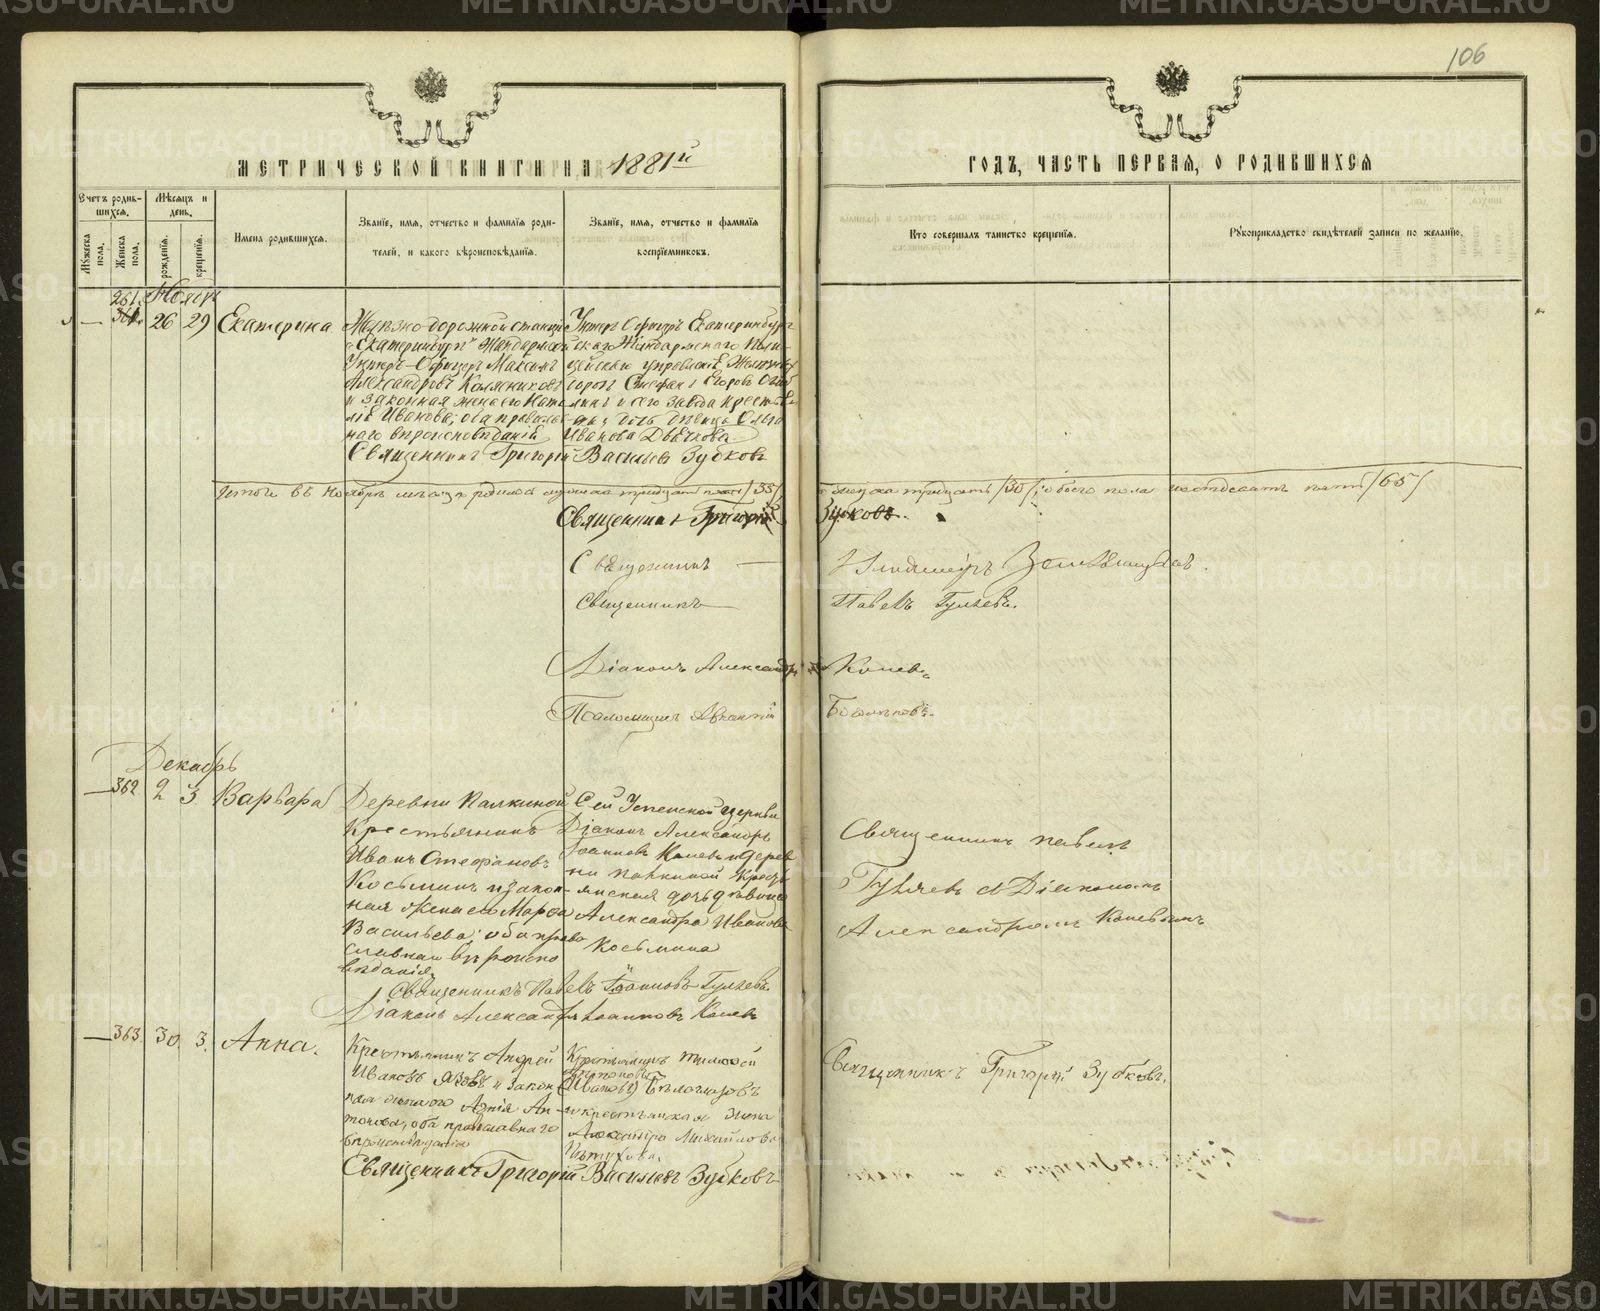 106
МЕТРИЧЕСКОЙ КНИГИ НА 1881й
ГОДЪ, ЧАСТЬ ПЕРВАЯ, О РОДИВШИХСЯ
Счетъ родив-
шихся.
Мѣсяцъ и
день.
Мужеска
пола.
Женска
пола.
рожденія.
крещенія.
Имена родившихся.
Званіе, имя, отчество и фамилія роди-
телей, и какого вѣроисповѣданія.
Званіе, имя, отчество и фамилія
воспріемниковъ.
Кто совершалъ таинство крещенія.
Рукоприкладство свидѣтелей записи по желанію.
261. Ноября
— 26 29 Екатерина
Желѣзно-дорожной станціи
„Екатеринбург“ Жандармскій
Унтеръ-Офицеръ Максимъ
Александровъ
и законная жена его Ната
лія Иванова; оба православ
наго вѣроисповѣданія
Унтеръ Офицеръ Екатеринбург
скаго Жандармскаго Поли-
цейскаго управленія Желѣзныхъ
дорогъ Стефанъ Егоровъ
завода крестьян
дочь дѣвица Ольга
Иванова
Священникъ Григорій Васильевъ Зубковъ
Итого въ Ноябрѣ мѣсяцѣ родилось мужска тридцать пять /35/
женска тридцать /30/, обоего пола шестьдесятъ пять /65/
Священникъ Григорій Зубковъ.
Священникъ — Владиміръ
Священникъ — Павелъ Гуляевъ.
Діаконъ Александръ Коневъ
Псаломщикъ
Декабрь
— 362 2 3 Варвара
Деревни Палкиной
Крестьянинъ
Иванъ Стефановъ
Косьминъ и закон-
ная жена его Марфа
Васильева; оба право
славнаго вѣроиспо
вѣданія.
Сей Успенской церкви
Діаконъ Александръ
Іоанновъ Коневъ и дерев
ни Палкиной Кресть
янская дочь дѣвица
Александра Иванова
Косьмина
Священникъ Павелъ
Гуляевъ съ Діакономъ
Александромъ Коневымъ
Священникъ Павелъ Іоанновъ Гуляевъ.
Діаконъ Александръ Іоанновъ Коневъ
— 363. 30. 3. Анна.
Крестьянинъ Андрей
Ивановъ и закон
ная жена его Ан-
тонова, оба православнаго
вѣроисповѣданія
Крестьянинъ Тимофей
Антоновъ
(Ивановъ) Бѣлоглазовъ
и крестьянская жена
Александра Михайлова
Пѣтухова.
Священникъ Григорій Зубковъ.
Священникъ Григорій Васильевъ Зубковъ
METRIKI.GASO-URAL.RU